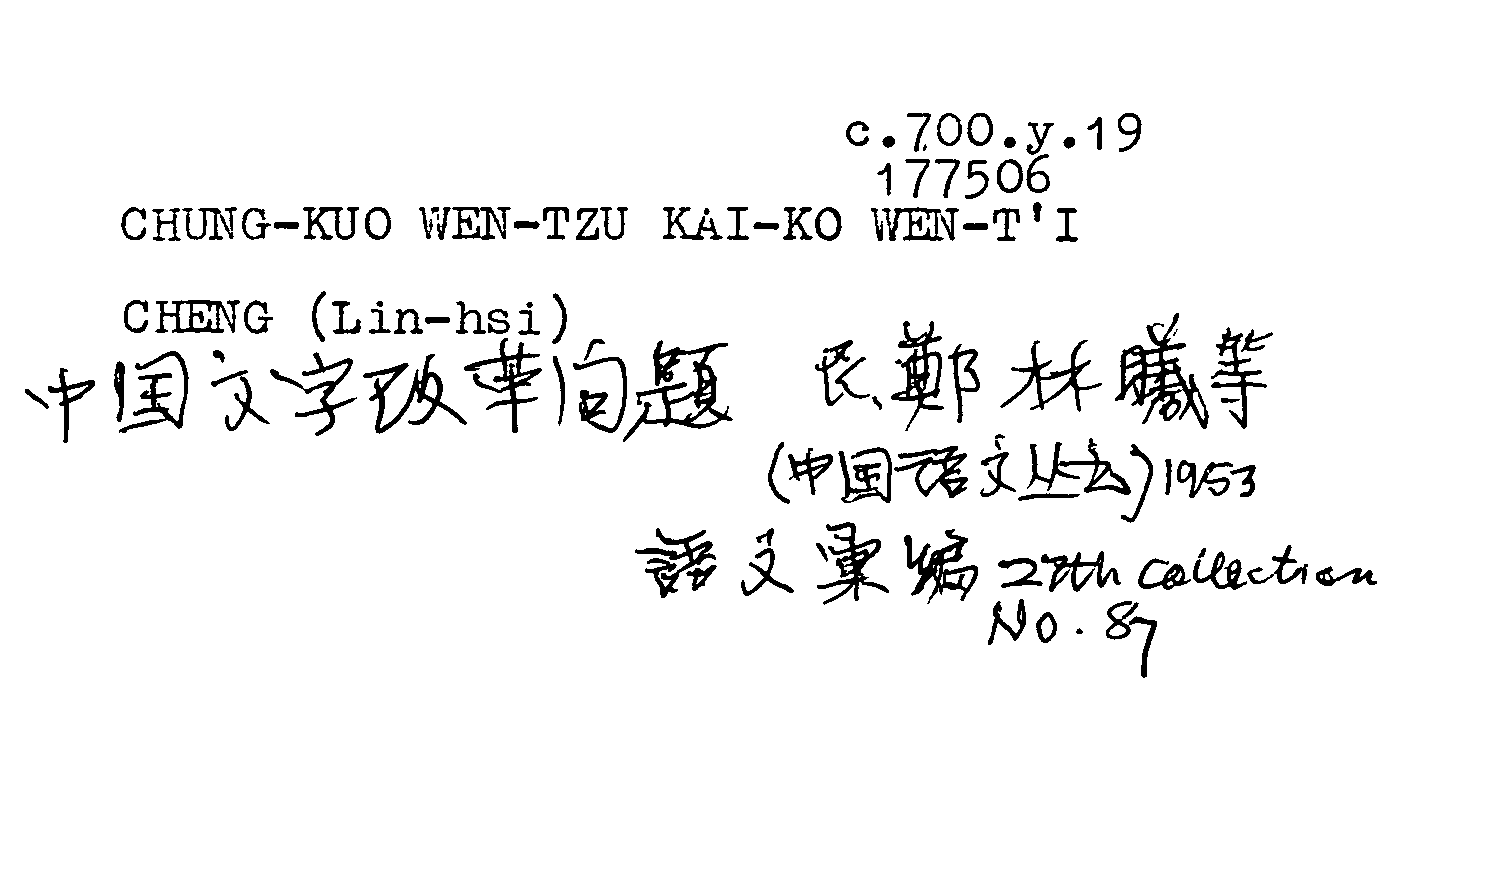 c.700.y.19
177506
CHUNG-KUO WEN-TZU KAI-KO WEN-T'I
CHENG (Lin-hsi)
中国文字改革问題 鄭林曦等
(中国语文丛) 1953
語文彙編 27th collection
No. 87